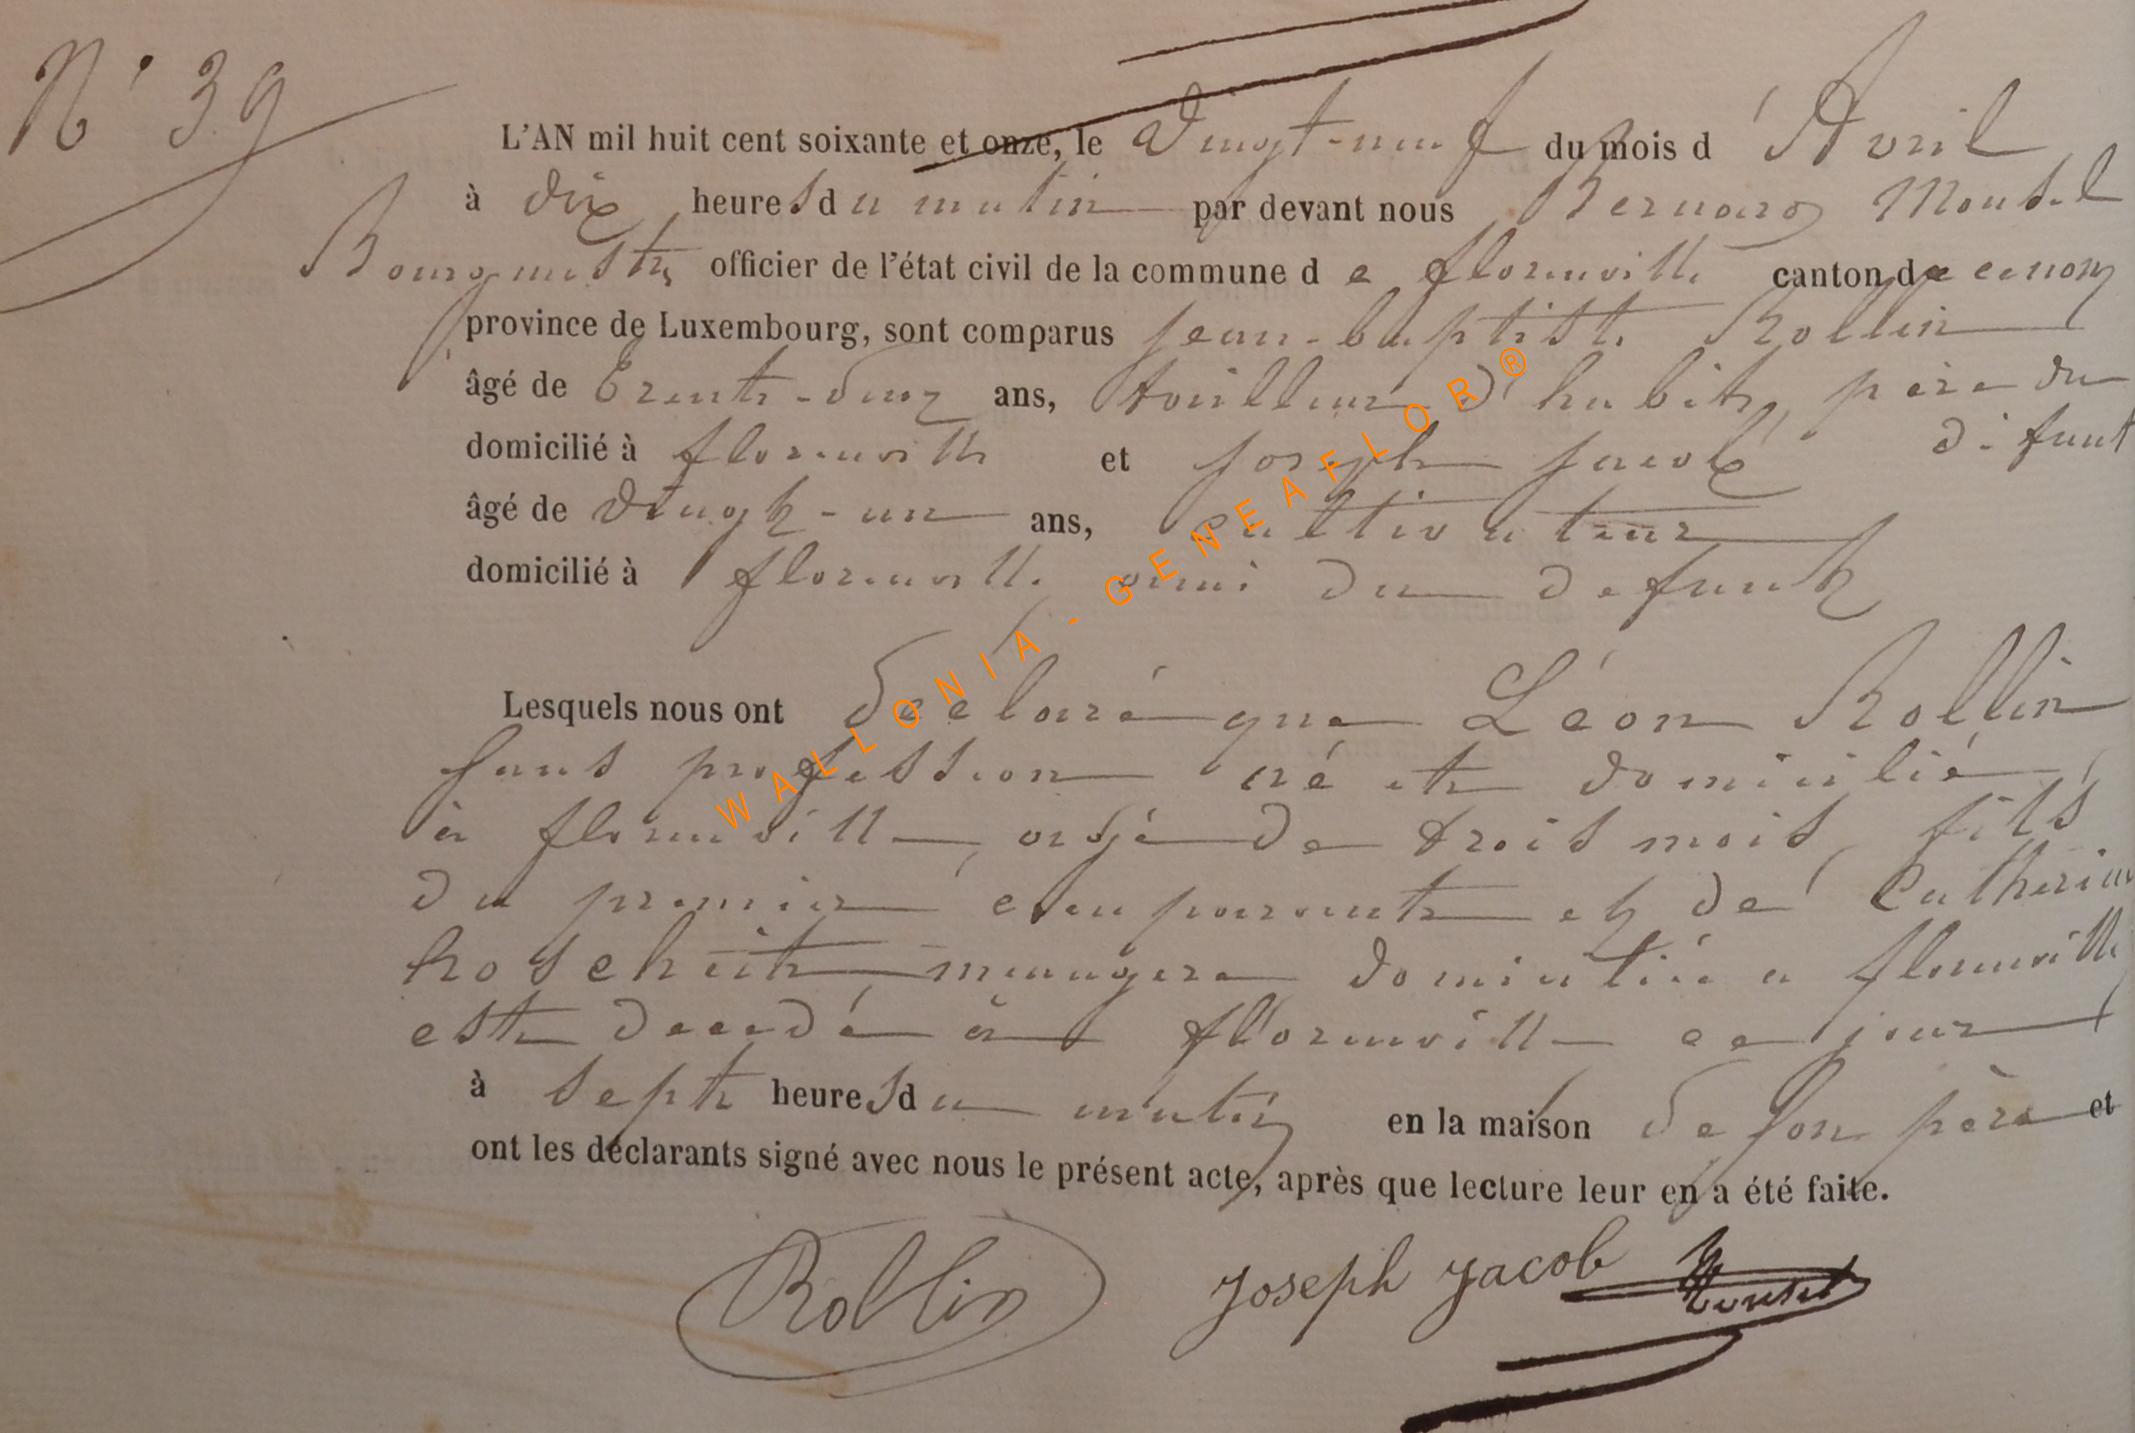 N° 39
L'AN mil huit cent soixante et onze, le Vingt-neuf du mois d'Avril
à dix heures du matin par devant nous Bernard Mousel
Bourgmestre officier de l'état civil de la commune de florenville canton de
province de Luxembourg, sont comparus jean-baptiste Rollin
âgé de Trente-deux ans, tailleur d'habits, père du
domicilié à florenville et joseph jacob défunt
âgé de Vingt-un ans, cultivateur
domicilié à florenville ami du defunt
Lesquels nous ont declaré que Léon Rollin
sans profession né et domicilié
à florenville, agé de trois mois, fils
du premier comparant et de Catherine
hoscheit menagere domiciliée a florenville
est decedé à florenville ce jour
à sept heures du matin en la maison de son père et
ont les déclarants signé avec nous le présent acte, après que lecture leur en a été faite.
Rollin Joseph Jacob Mousel
WALLONIA-GENEAFLOR®